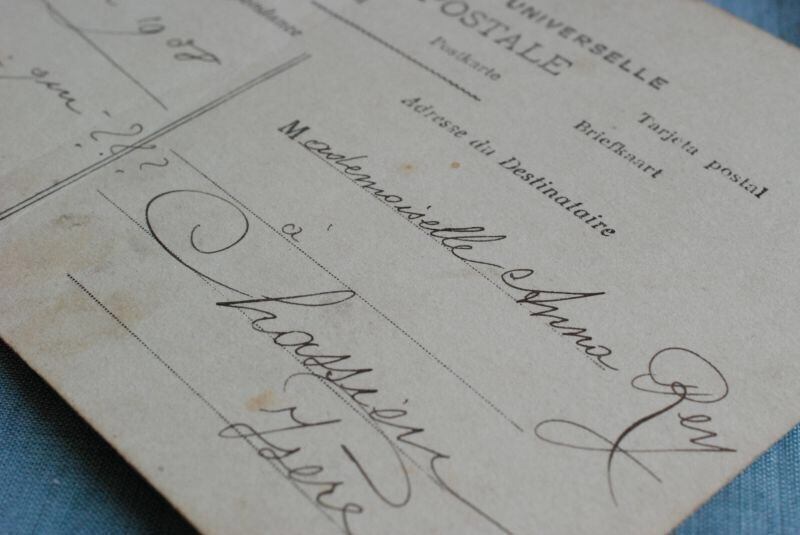 UNIVERSELLE
POSTALE
Postkarte
Tarjeta postal
Briefkaart
Adresse du Destinataire
Mademoiselle Anna Rey
à
Chassieu
Isère
1908